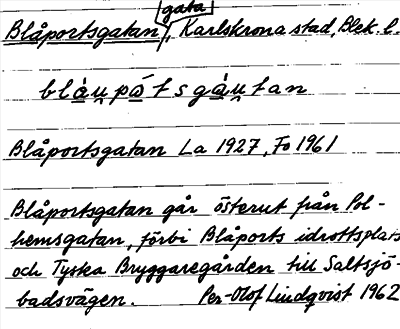 gata
Blåportsgatan, Karlskrona stad, Blek. l.
Blåportsgatan La 1927, Fo 1961
Blåportsgatan går österut från Pol-
hemsgatan, förbi Blåports idrottsplats
och Tyska Bryggaregården till Saltsjö-
badsvägen. Per-Olof Lindqvist 1962